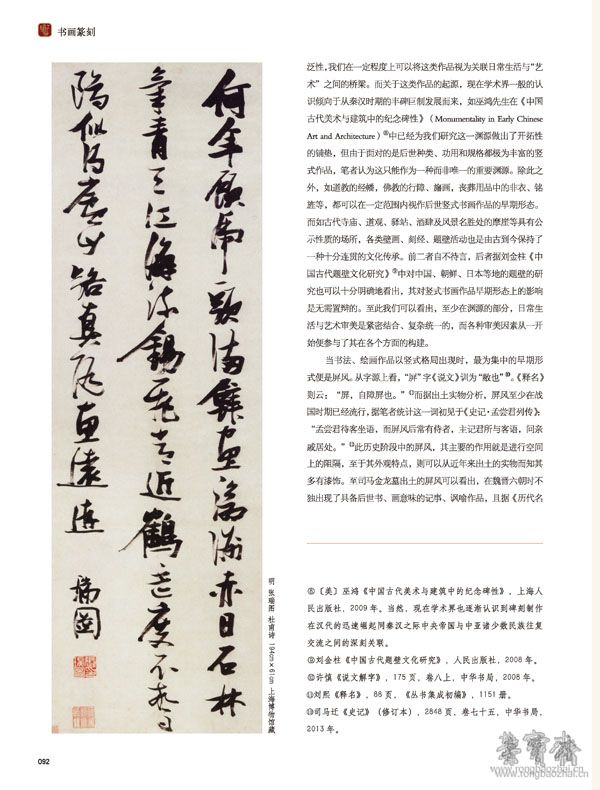 书画篆刻
何年顧虎頭滿壁畫滄洲赤日石林
氣青天江海流錫飛常近鶴杯度不驚
似得廬山路真隨惠遠遊
瑞圖
明 张瑞图 杜甫诗 194cm×61cm 上海博物馆藏
泛性，我们在一定程度上可以将这类作品视为关联日常生活与“艺
术”之间的桥梁。而关于这类作品的起源，现在学术界一般的认
识倾向于从秦汉时期的丰碑巨制发展而来，如巫鸿先生在《中国
古代美术与建筑中的纪念碑性》（Monumentality in Early Chinese
Art and Architecture）⑧中已经为我们研究这一渊源做出了开拓性
的铺垫，但由于面对的是后世种类、功用和规格都极为丰富的竖
式作品，笔者认为这只能作为一种而非唯一的重要渊源。除此之
外，如道教的经幡，佛教的行障、幢画，丧葬用品中的非衣、铭
旌等，都可以在一定范围内视作后世竖式书画作品的早期形态。
而如古代寺庙、道观、驿站、酒肆及风景名胜处的摩崖等具有公
示性质的场所，各类壁画、刻经、题壁活动也是由古到今保持了
一种十分连贯的文化传承。前二者自不待言，后者据刘金柱《中
国古代题壁文化研究》⑨中对中国、朝鲜、日本等地的题壁的研
究也可以十分明确地看出，其对竖式书画作品早期形态上的影响
是无需置辩的。至此我们可以看出，至少在渊源的部分，日常生
活与艺术审美是紧密结合、复杂统一的，而各种审美因素从一开
始便参与了其在各个方面的构建。
当书法、绘画作品以竖式格局出现时，最为集中的早期形
式便是屏风。从字源上看，“屏”字《说文》训为“敝也”⑩。《释名》
则云：“屏，自障屏也。”⑪而据出土实物分析，屏风至少在战
国时期已经流行，据笔者统计这一词初见于《史记·孟尝君列传》：
“孟尝君待客坐语，而屏风后常有侍者，主记君所与客语，问亲
戚居处。”⑫此历史阶段中的屏风，其主要的作用就是进行空间
上的阻隔，至于其外观特点，则可以从近年来出土的实物而知其
多有漆饰。至司马金龙墓出土的屏风可以看出，在魏晋六朝时不
独出现了具备后世书、画意味的记事、讽喻作品，且据《历代名
⑧〔美〕巫鸿《中国古代美术与建筑中的纪念碑性》，上海人
民出版社，2009年。当然，现在学术界也逐渐认识到碑刻制作
在汉代的迅速崛起同秦汉之际中央帝国与中亚诸少数民族往复
交流之间的深刻关联。
⑨刘金柱《中国古代题壁文化研究》，人民出版社，2008年。
⑩许慎《说文解字》，175页，卷八上，中华书局，2008年。
⑪刘熙《释名》，88页，《丛书集成初编》，1151册。
⑫司马迁《史记》（修订本），2848页，卷七十五，中华书局，
2013年。
092
荣宝斋
www.rongbaozhai.cn